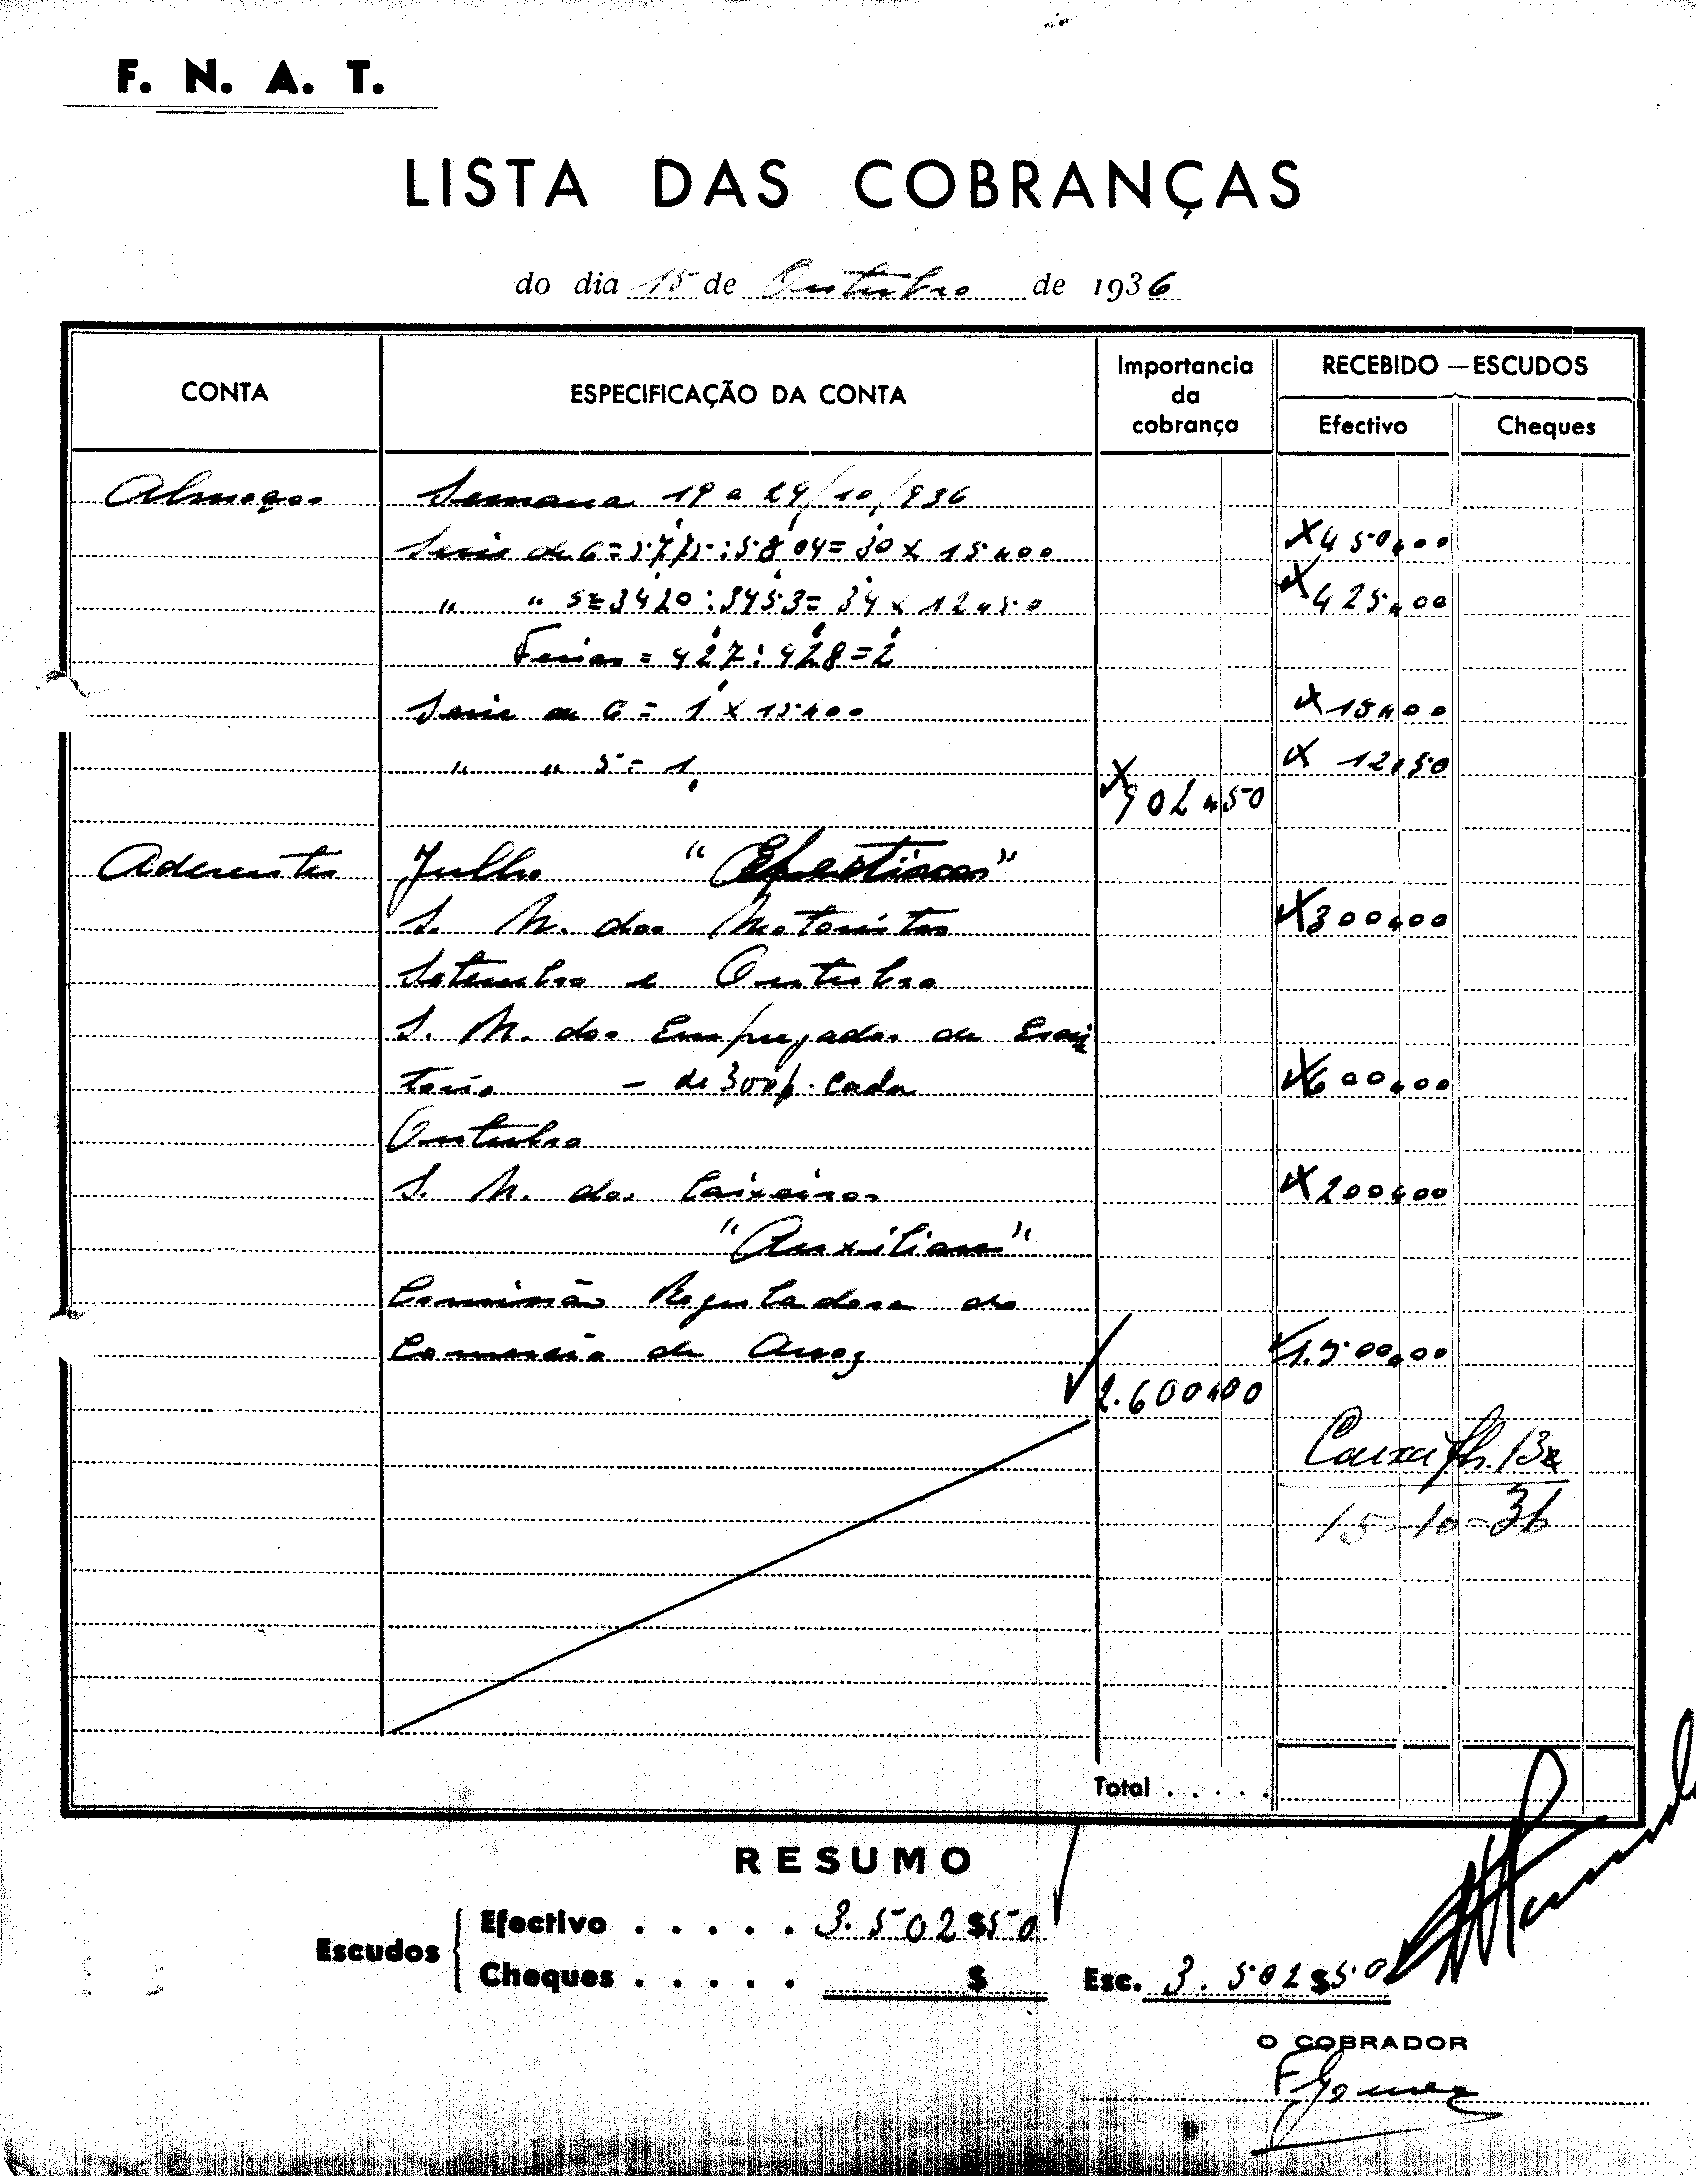 F. N. A. T.
LISTA DAS COBRANÇAS
do dia 15 de Outubro de 1936
CONTA
ESPECIFICAÇÃO DA CONTA
Importancia da cobrança
RECEBIDO — ESCUDOS
Efectivo
Cheques
Almoços Semana 19 a 24/10/936
Serie de 6 = 5775 : 5804 = 30 x 15$00 450$00
" " 5 = 3420 : 3453 = 34 x 12$50 425$00
Ferias = 427 : 428 = 2
Serie de 6 = 1 x 15$00 15$00
" " 5 = 1 12$50
902$50
Aderentes Julho "Efectivos"
S. N. dos Motoristas 300$00
Setembro e Outubro
S. N. dos Empregados de Escri
torio — de 300$ cada 600$00
Outubro
S. N. dos Caixeiros 200$00
"Auxiliares"
Comissão Reguladora do
Comercio de Arroz 1.500$00
2.600$00
Caixa fls.
15-10-36
Total . . . . .
RESUMO
Escudos
Efectivo . . . . . 3.502$50
Cheques . . . . . $
Esc. 3.502$50
O COBRADOR
F Gomes